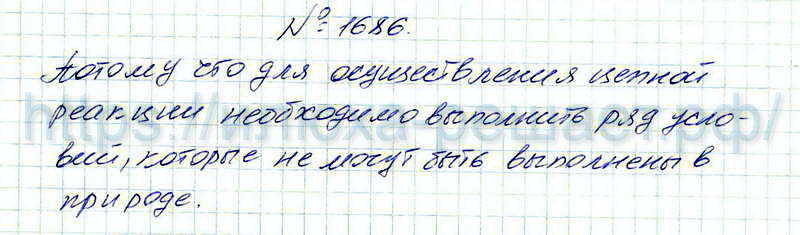 № 1686.
Потому что для осуществления цепной
реакции необходимо выполнить ряд усло-
вий, которые не могут быть выполнены в
природе.